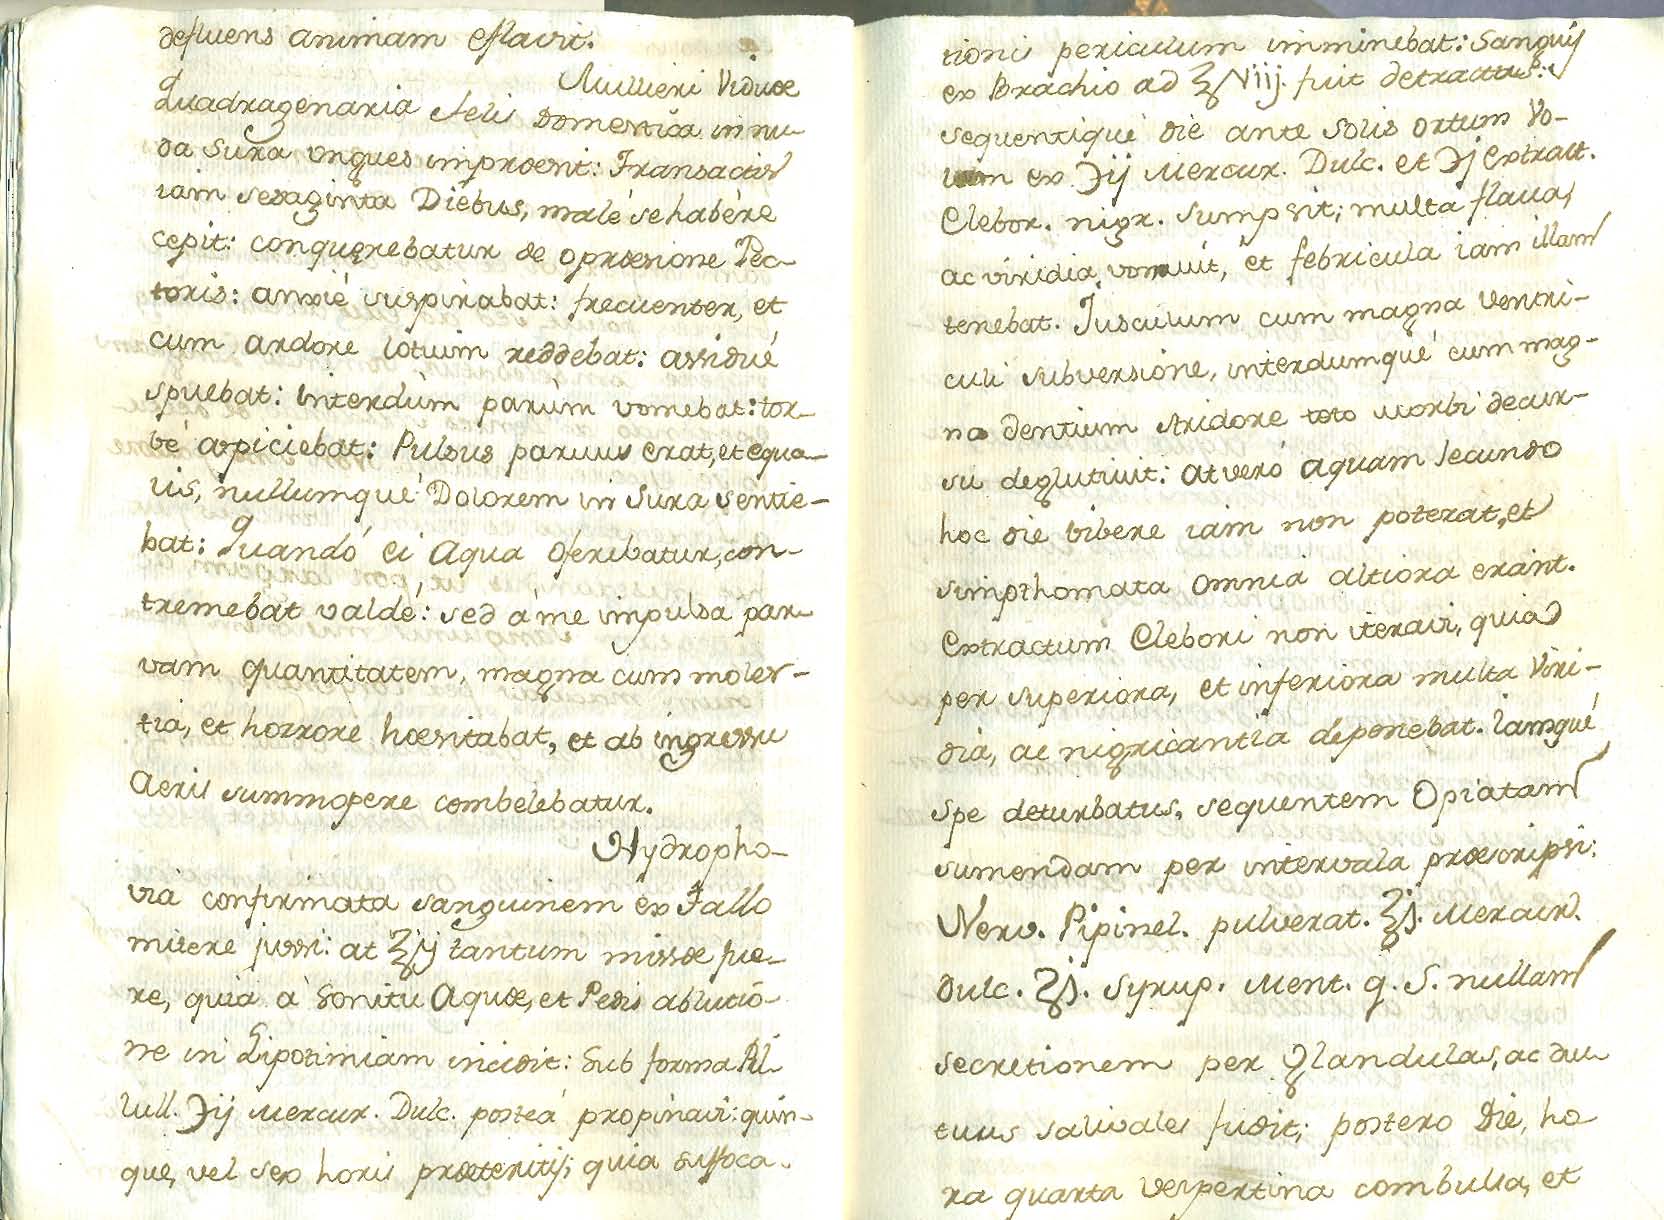 defluens animam eflavit.
Mullieri Viduæ
Quadragenaria felis Domestica in nu-
da Sura ungues impræsit: Transactis
iam sexaginta Diebus, malè se habere
cepit: conquerebatur de opræsione Pec-
toris: anxié suspirabat: frecuenter, et
cum ardore lotium reddebat: assidué
spuebat: Interdùm parùm vomebat: tor-
vé aspiciebat: Pulsus parvus erat, et equa-
lis, nullumqué Dolorem in Sura sentie-
bat: Quandó ei Aqua oferebatur, con-
tremebat valdé: sed á me impulsa par-
vam quantitatem, magna cum moles-
tia, et horrore hæsitabat, et ab ingressu
Aeris summopere combelebatur.
Hydropho-
via confirmata sanguinem ex Tallo
mitere jussi: at ℥ij tantum missæ fue-
re, quia à Sonitu Aquæ, et Pedis ablutio-
ne in Lipotimiam incidit: Sub forma Pil-
lull. ℈ij Mercur. Dulc. posteá propinavi: quin-
que, vel sex horis præteritis; quia suffoca-
tionis periculum imminebat: Sanguis
ex Brachio ad ℥Viij. fuit detractus:
sequentiqué die ante Solis ortum Vo-
lum ex ℈ij Mercur. Dulc. et ℈j Extract.
Elebor. nigr. sumpsit; multa flava,
ac viridia vomuit, et febricula iam illam
tenebat. Jusculum cum magna Ventri-
culi subversione, interdumqué cum mag-
na dentium stridore toto morbi decur-
su deglutivit: At veró aquam secundo
hoc die bibere iam non poterat, et
simpthomata omnia altiora erant.
Extractum Elebori non iteravi, quia
per superiora, et inferiora multa Viri-
dia, ac nigricantia deponebat. Iamqué
spe deturbatus, sequentem Opiatam
sumendam per intervala præscripsi:
Nerv. Pipinel. pulverat. ℥j. Mercur.
dulc. ℥j. Syrup. Ment. q. S. nullam
secretionem per Glandulas, ac duc-
tuus salivales fudit; postero Die, ho
ra quarta vespertina combulsa, et